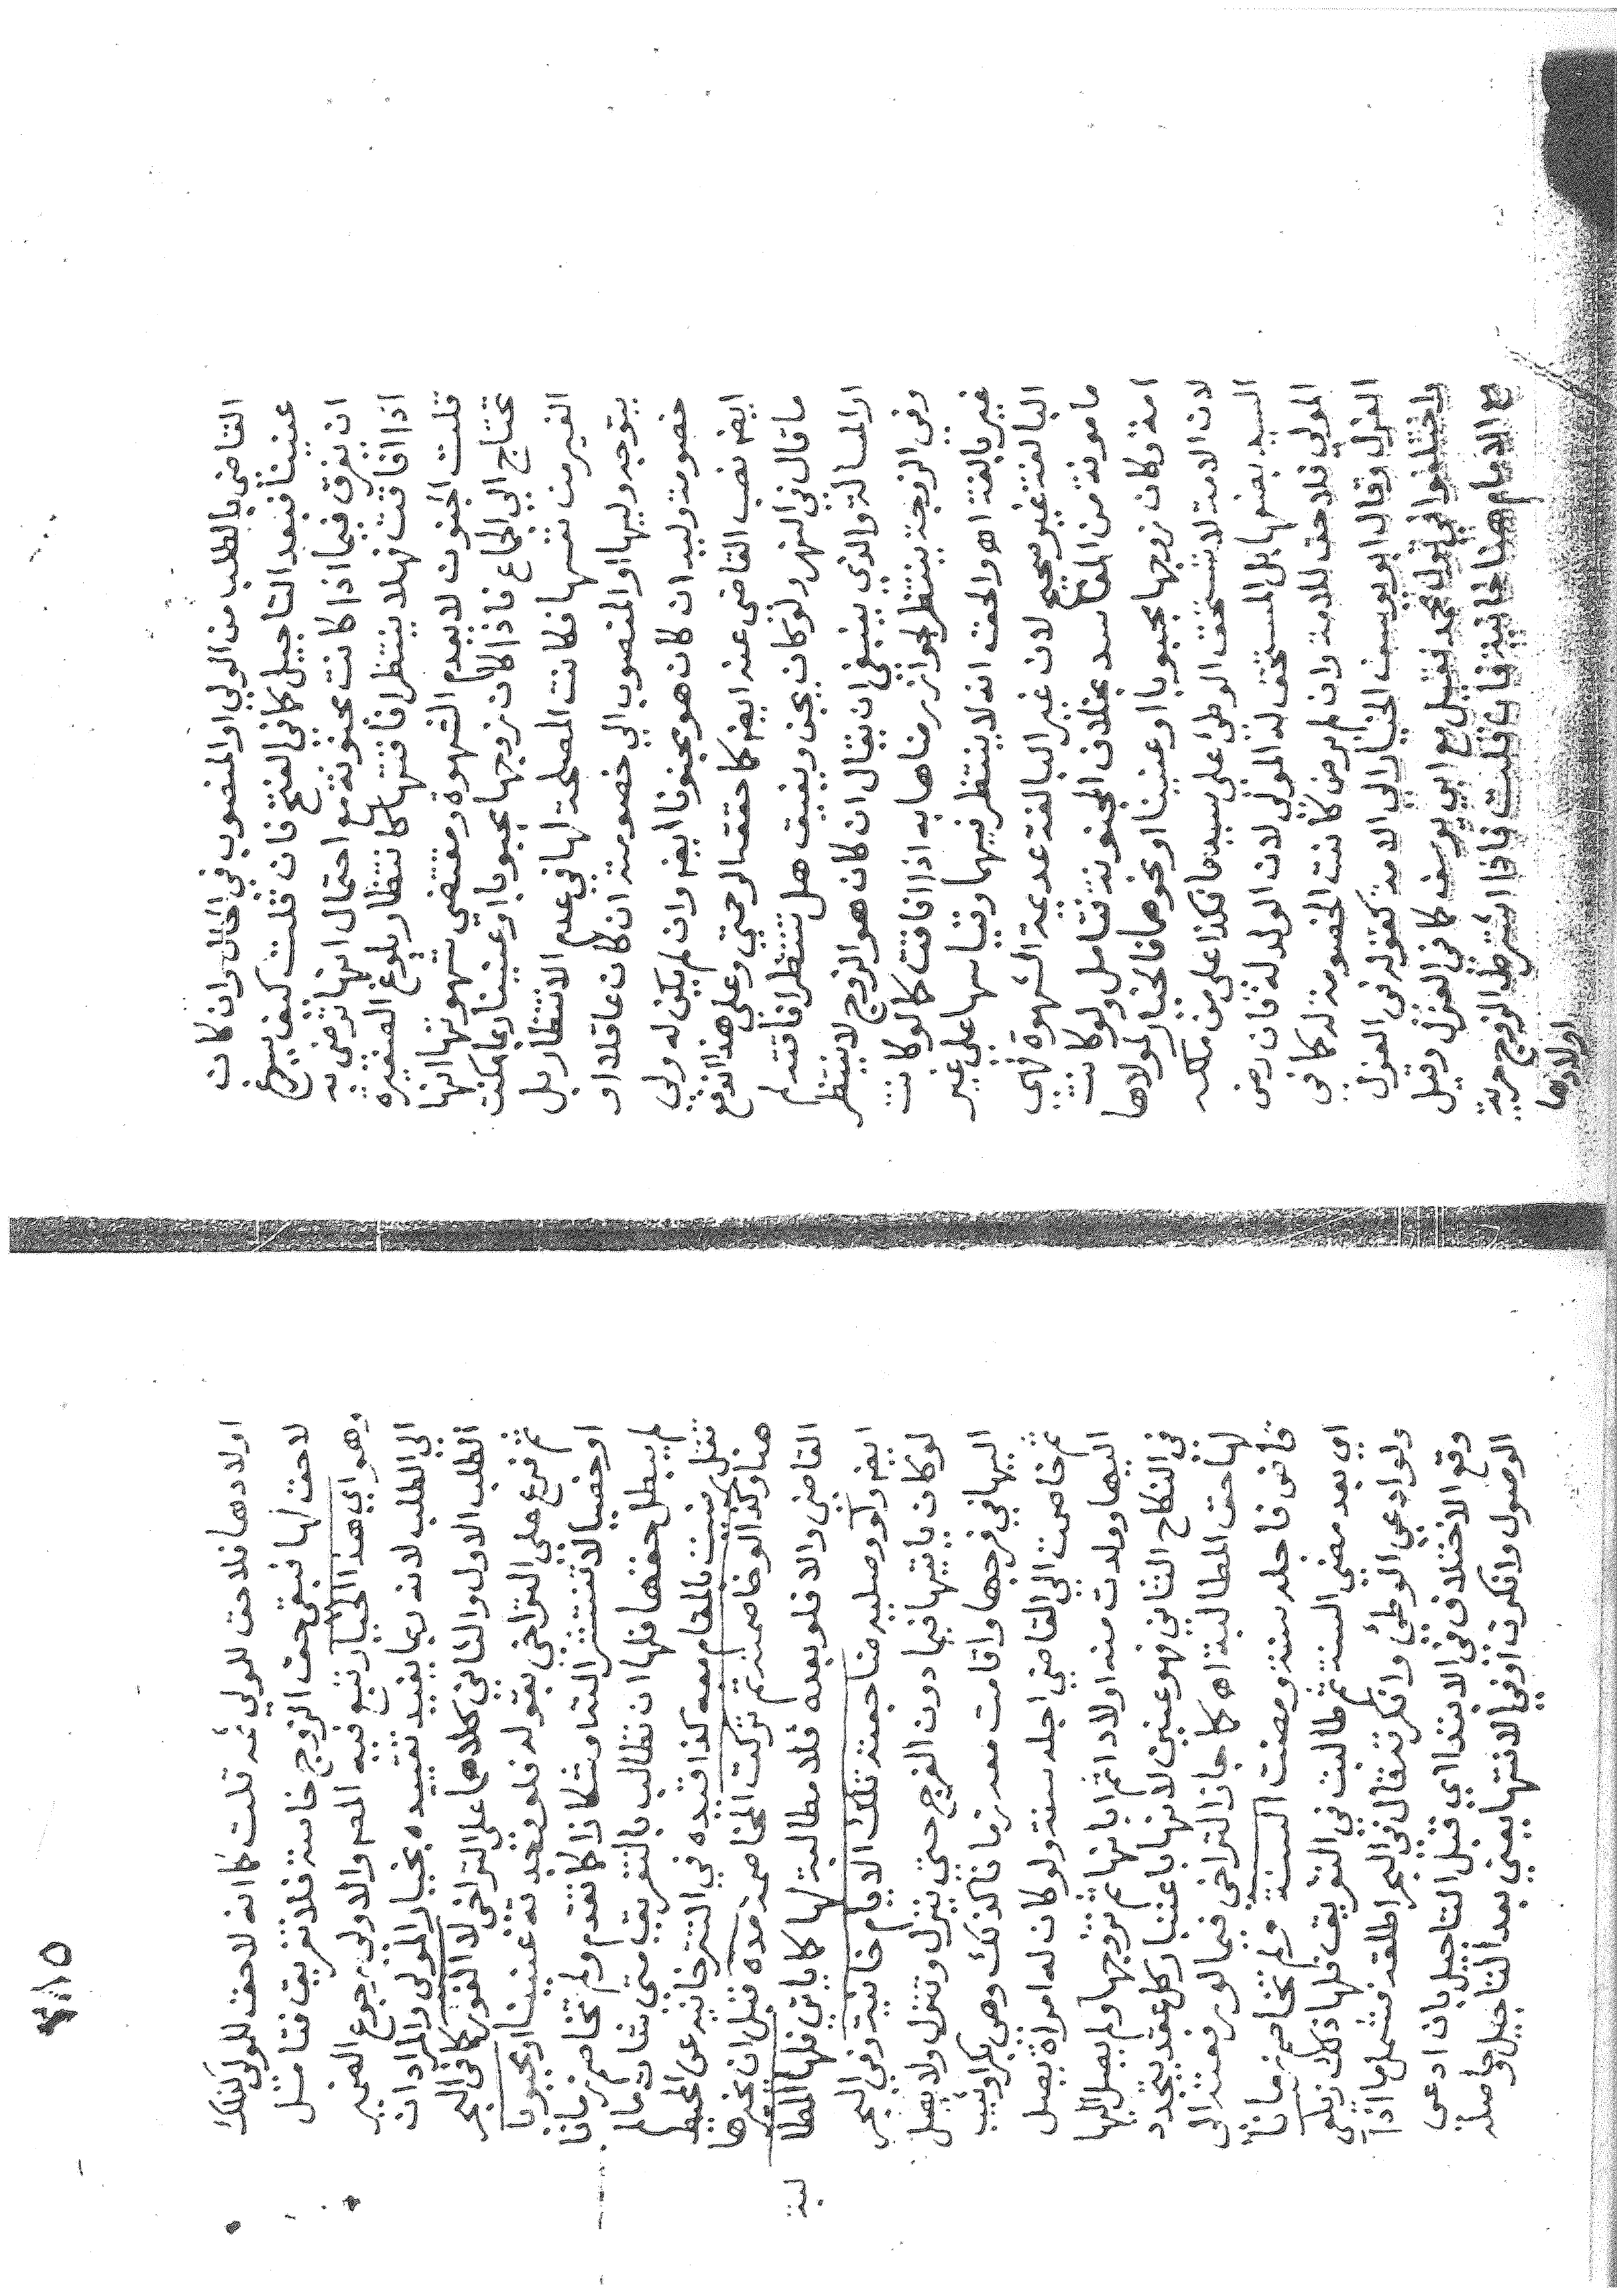 القاضي بالطلب من الولي او المنصوب في الحال وان كان
عنينا فبعد التاجيل كما في الفتح فان قلت كيف يسوغ
ان نفرق فيما اذا كانت مجنونة مع احتمال انها ترضى به
اذا افاقت فهلا ينتظر افاقتها كانتظار بلوغ الصغيرة
قلت الجنون لا يعدم الشهوة ومقتضي شهوتها انها
تحتاج الي الجماع فاذا كان زوجها مجبوبا او عنينا ربما مكنت
الغير من نفسها فكانت المصلحة لها في عدم الانتظار بل
يتوجه وليها او المنصوب الي خصومته ان كان عاقلا او
خصومة وليه ان كان هو مجنونا ايضا وان لم يكن له ولي
ايضا نصب القاضي عنه ايضا كما حققه الرحمتي وعلي هذا اندفع
ما قال في النهر ولو كان يجن ويفيق هل تنتظر افاقته لم
ار المسالة والذي ينبغي ان يقال ان كان هو الزوج لا ينتظر
وفي الزوجة ينتظر لجواز رضاها به اذا افاقت كما لو كانت
غير بالغة اه والحق انه لا ينتظر فيهما وقياسها علي غير
البالغة غير صحيح لان غير البالغة عديمة الشهوة فهي
مامونة من المفاسد بخلاف المجنونة فتامل ولو كانت
امة وكان زوجها مجبوبا او عنينا ونحوهما فالخيار لمولاها
لان الامة لا تستحق الوطئ علي سيدها فكذا علي من ملكه
السيد بضعها بل المستحق له المولي لان الولد له فان رضي
المولي فلا حق للامة وان لم يرض كانت الخصومة له كما في
العزل وقال ابو يوسف الخيار الي الامة كقوله في العزل
واختلفوا في قول محمد فقيل مع ابي يوسف كما في العزل وقيل
مع الامام هنا خانية قلت فاذا اشترط الزوج حرية
اولادها
اولادها فلا حق للمولي ثمه قلت كما انه لا حق للمولي كذلك
لا حق لها فبقي حق الزوج خاصة فلا تفريق فتامل
وهو اي هذا الخيار تبع فيه المص والاولي رجوع الضمير
الي الطلب لانه ربما يفيد تقييده بخيار المولي والمراد ان
الطلب الاول والثاني كلاهما علي التراخي لا الفور كما في البحر
ثم فرع علي التراخي بقوله فلو وجدته عنينا او مجبوبا
او خصيا لا تنتشر التاوشكازا كما تقدم ولم تخاصم زمانا
لم يبطل حقها فلها ان تطالب بالتفريق متي شات ما لم
تقل رضيت بالمقام معه كذا قيده في التترخانية عن المحيط
هنا وكذا لو خاصمته ثم تركت المخاصمة مدة قبل ان يخيرها
القاضي والا فلو بعده فلا مطالبة لها كما ياتي فلها المطا
لبة
ايضا ولو وصلية ضاجعته تلك الايام خانية وفي البحر
لو كان ياتيها فيما دون الفرج حتي ينزل وتنزل ولا يصل
اليها في فرجها واقامت معه زمانا كذلك وهي بكر او ثيب
ثم خاصمت الي القاضي اجله سنة ولو كان له امراة يصل
اليها وولدت منه اولادا ثم ابانها ثم تزوجها ولم يصل اليها
في النكاح الثاني فهو عنين لانها باعتبار كل عقد يتجدد
لها حق المطالبة اه كما جاز التراخي فيما لو رفعته الي
قاض فاجله سنة ومضت السنة ولم تخاصم زمانا
اي بعد مضي السنة ثم طالبت في التفريق فلها ذلك زيلعي
ولو ادعي الوطئ وانكرته قال في البحر اطلقه فشمل ما اذا
وقع الاختلاف في الابتدا اي قبل التاجيل بان ادعي
الوصول وانكرت او في الانتها يعني بعد التاجيل وحاصله